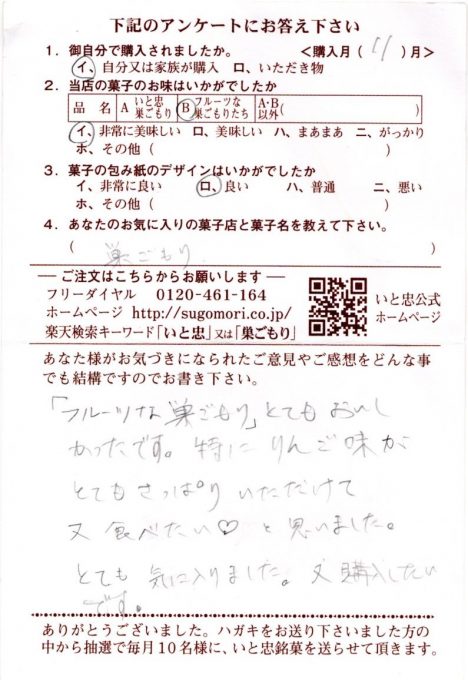 下記のアンケートにお答え下さい
1. 御自分で購入されましたか。 <購入月( 11 )月>
イ、自分又は家族が購入 ロ、いただき物
2. 当店の菓子のお味はいかがでしたか
品 名 A いと忠巣ごもり B フルーツな巣ごもりたち A・B以外( )
イ、非常に美味しい ロ、美味しい ハ、まあまあ ニ、がっかり
ホ、その他( )
3. 菓子の包み紙のデザインはいかがでしたか
イ、非常に良い ロ、良い ハ、普通 ニ、悪い
ホ、その他( )
4. あなたのお気に入りの菓子店と菓子名を教えて下さい。
( 巣ごもり )
ご注文はこちらからお願いします
フリーダイヤル 0120-461-164
ホームページ http://sugomori.co.jp/
楽天検索キーワード「いと忠」又は「巣ごもり」
いと忠公式
ホームページ
あなた様がお気づきになられたご意見やご感想をどんな事
でも結構ですのでお書き下さい。
「フルーツな巣ごもり」とてもおいし
かったです。特にりんご味が
とてもさっぱりいただけて
又食べたい♡と思いました。
とても気に入りました。又購入したい
です。
ありがとうございました。ハガキをお送り下さいました方の
中から抽選で毎月10名様に、いと忠銘菓を送らせて頂きます。